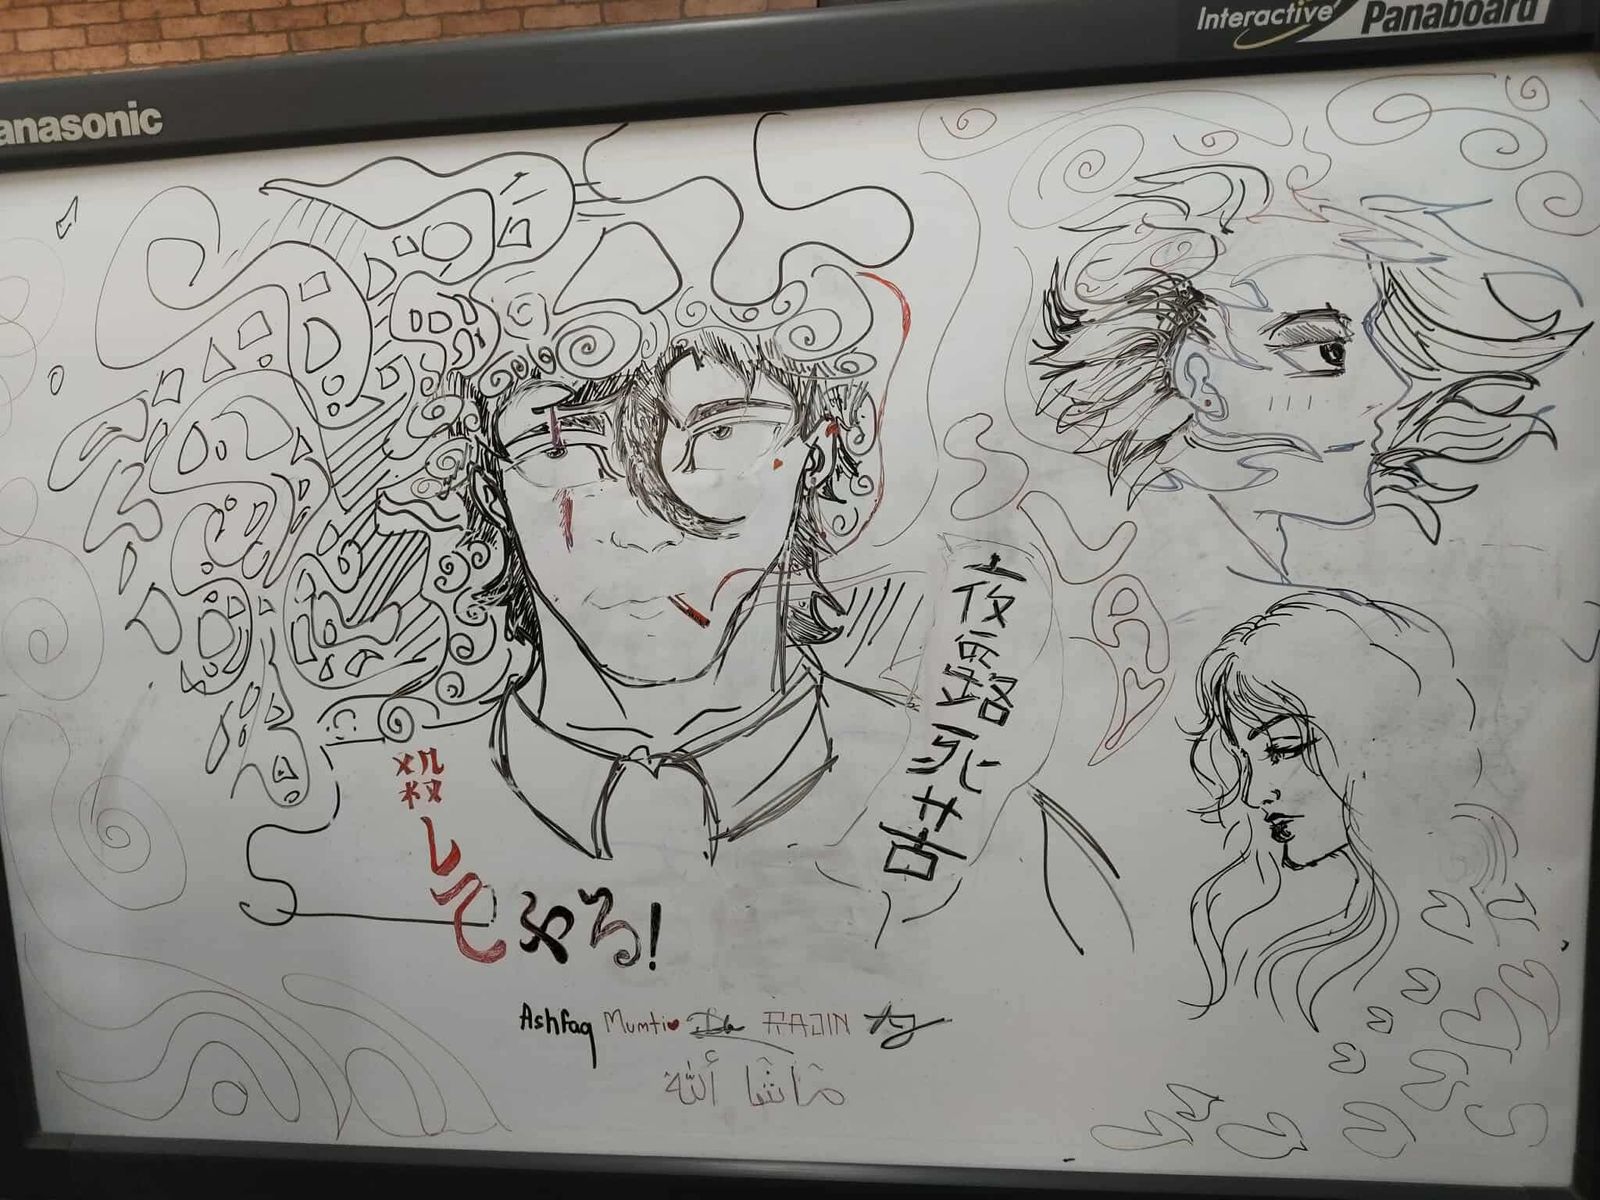 Interactive Panaboard
anasonic
夜露死苦
殺してやる!
Ashfaq Mumti♥ RAJIN
ماشا ألله